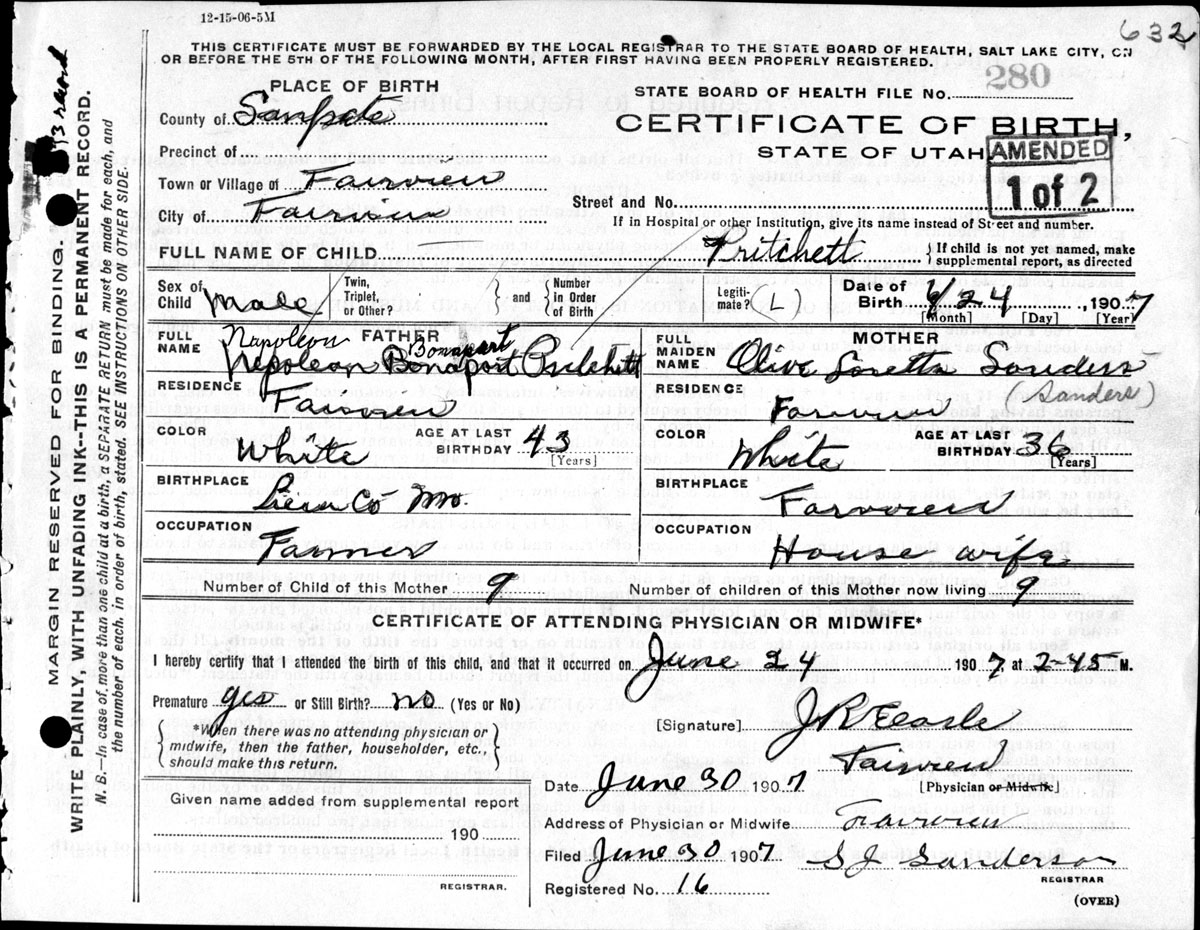 12-15-06-5M
632
THIS CERTIFICATE MUST BE FORWARDED BY THE LOCAL REGISTRAR TO THE STATE BOARD OF HEALTH, SALT LAKE CITY, ON
OR BEFORE THE 5TH OF THE FOLLOWING MONTH, AFTER FIRST HAVING BEEN PROPERLY REGISTERED.
PLACE OF BIRTH
STATE BOARD OF HEALTH FILE No. 280
County of Sanpete
CERTIFICATE OF BIRTH,
Precinct of
STATE OF UTAH
AMENDED
1 of 2
Town or Village of Fairview
Street and No.
City of Fairview
If in Hospital or other Institution, give its name instead of Street and number.
FULL NAME OF CHILD Pritchett
If child is not yet named, make
supplemental report, as directed
Sex of Child Male
Twin, Triplet, or Other?
and
Number in Order of Birth
Legiti-mate? (L)
Date of Birth 6/24, 1907
[Month] [Day] [Year]
FATHER
FULL NAME
Napoleon Bonapart
Nepolean Bonaport Pritchett
RESIDENCE
Fairview
COLOR White
AGE AT LAST BIRTHDAY 43
[Years]
BIRTHPLACE
Co Mo.
OCCUPATION
Farmer
MOTHER
FULL MAIDEN NAME
Olive Loretta Sanders
(Sanders)
RESIDENCE
Fairview
COLOR White
AGE AT LAST BIRTHDAY 36
[Years]
BIRTHPLACE
Fairview
OCCUPATION
House wife
Number of Child of this Mother 9
Number of children of this Mother now living 9
CERTIFICATE OF ATTENDING PHYSICIAN OR MIDWIFE*
I hereby certify that I attended the birth of this child, and that it occurred on June 24 1907 at 2-45 M.
Premature yes or Still Birth? no (Yes or No)
*When there was no attending physician or
midwife, then the father, householder, etc.,
should make this return.
[Signature] J R Earle
Fairview
Date June 30 1907
[Physician or Midwife.]
Given name added from supplemental report
190
REGISTRAR.
Address of Physician or Midwife Fairview
Filed June 30 1907
S J Sanderson
REGISTRAR
Registered No. 16
(OVER)
MARGIN RESERVED FOR BINDING.
WRITE PLAINLY, WITH UNFADING INK--THIS IS A PERMANENT RECORD.
N. B.—In case of more than one child at a birth, a SEPARATE RETURN must be made for each, and
the number of each, in order of birth, stated. SEE INSTRUCTIONS ON OTHER SIDE.